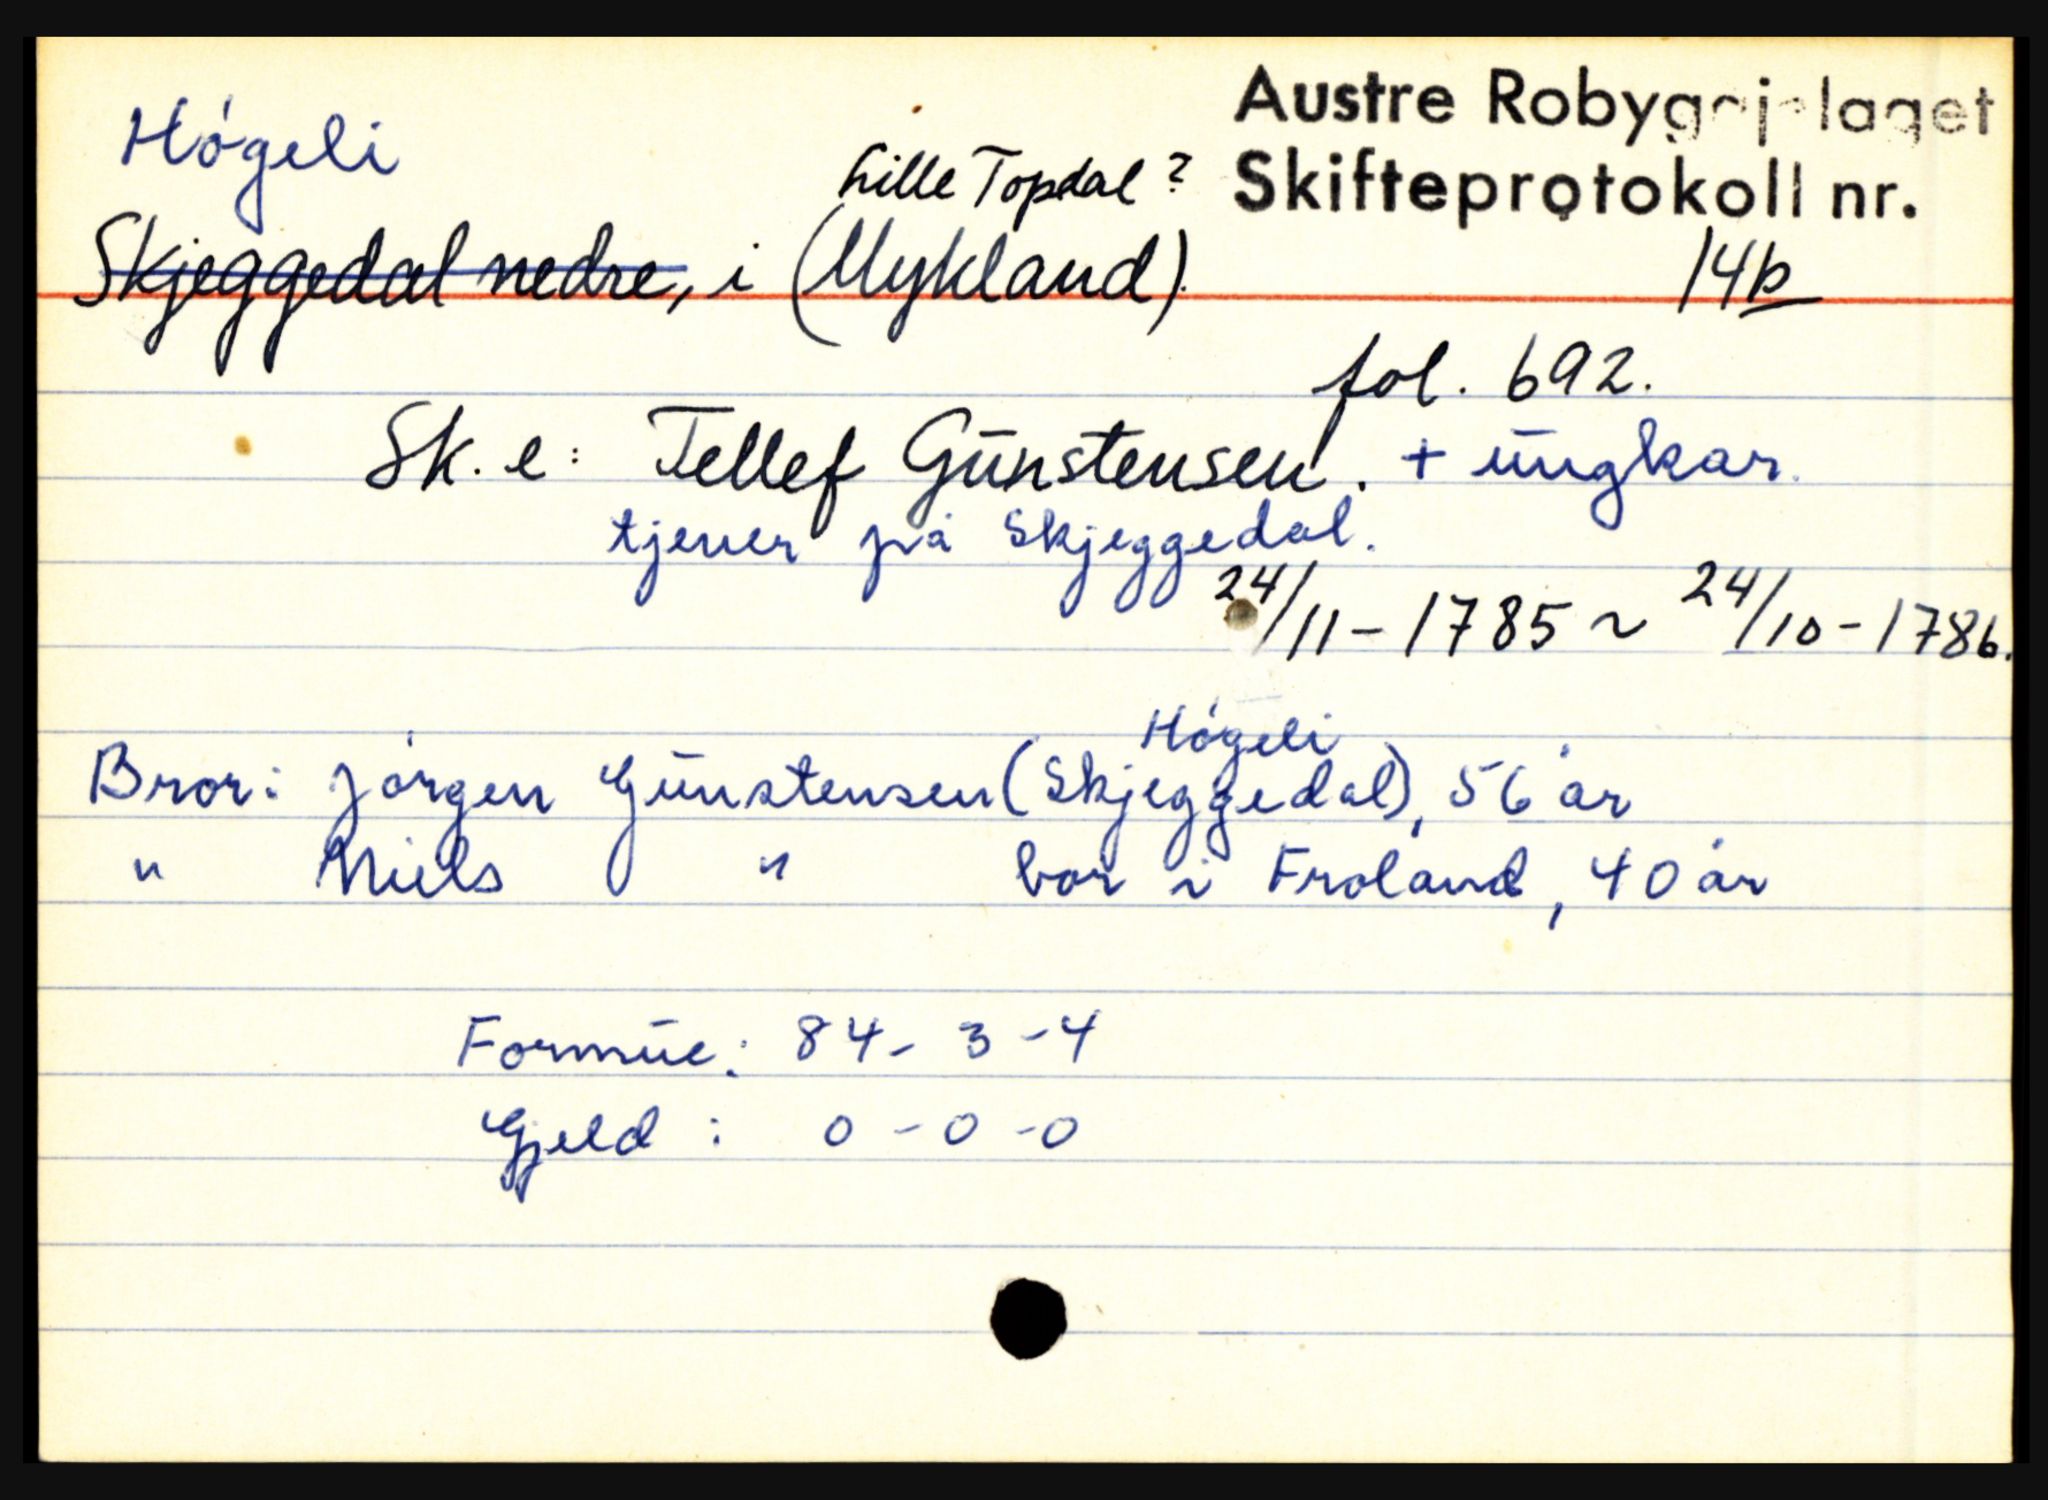 Austre Robyggjelaget
Skifteprotokoll nr.
14b
Högeli
Lille Topdal?
Skjeggedal nedre, i (Mykland).
fol. 692.
Sk. e: Tellef Gūnstensen. + ūngkar.
tjener på Skjeggedal.
24/11 - 1785 ~ 24/10 - 1786.
Högeli
Bror: Jörgen Gūnstensen (Skjeggedal), 56 år
" Niels " bor i Froland, 40 år
Formūe: 84 - 3 - 4
Gjeld : 0 - 0 - 0